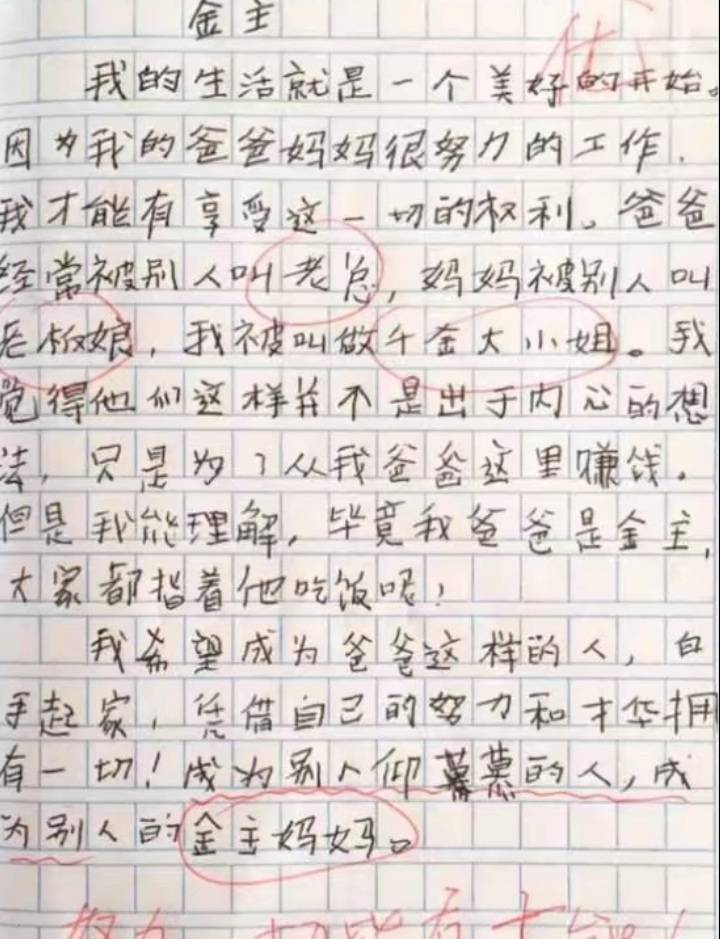 金主
优
我的生活就是一个美好的开始。
因为我的爸爸妈妈很努力的工作，
我才能有享受这一切的权利。爸爸
经常被别人叫老总，妈妈被别人叫
老板娘，我被叫做千金大小姐。我
觉得他们这样并不是出于内心的想
法，只是为了从我爸爸这里赚钱。
但是我能理解，毕竟我爸爸是金主，
大家都指着他吃饭呢！
我希望成为爸爸这样的人，白
手起家，凭借自己的努力和才华拥
有一切！成为别人仰慕的人，成
为别人的金主妈妈。
努力，一切皆有